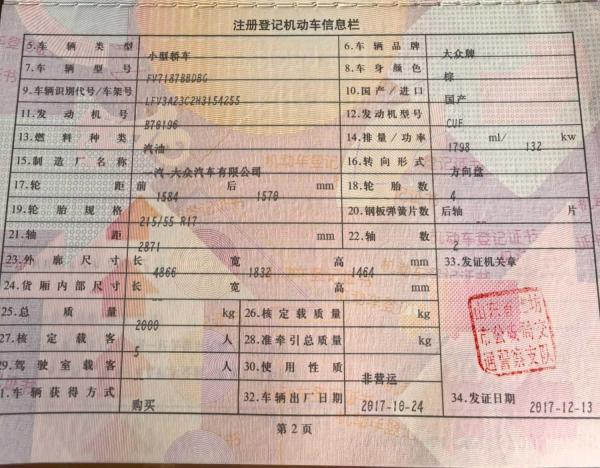 注册登记机动车信息栏
5.车辆类型 小型轿车 6.车辆品牌 大众牌
7.车辆型号 FV7187BBDBG 8.车身颜色 棕
9.车辆识别代号/车架号 LFV3A23C2H3154255 10.国产/进口 国产
11.发动机号 B76196 12.发动机型号 CUF
13.燃料种类 汽油 14.排量/功率 1798 ml/ 132 kw
15.制造厂名称 一汽-大众汽车有限公司 16.转向形式 方向盘
17.轮距 前 1584 后 1570 mm 18.轮胎数 4
19.轮胎规格 215/55 R17 20.钢板弹簧片数 后轴 片
21.轴距 2871 mm 22.轴数 2
23.外廓尺寸 长 4866 宽 1832 高 1464 mm 33.发证机关章
24.货厢内部尺寸 长 宽 高 mm
25.总质量 2000 kg 26.核定载质量 kg
27.核定载客 5 人 28.准牵引总质量 kg
29.驾驶室载客 人 30.使用性质 非营运
1.车辆获得方式 购买 32.车辆出厂日期 2017-10-24 34.发证日期 2017-12-13
山东省潍坊
市公安局交
通警察支队
第2页